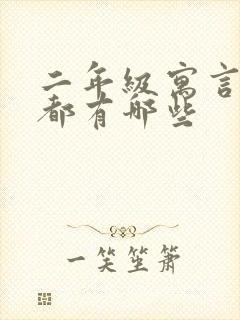 二年级寓言
都有哪些
一笑坐萧